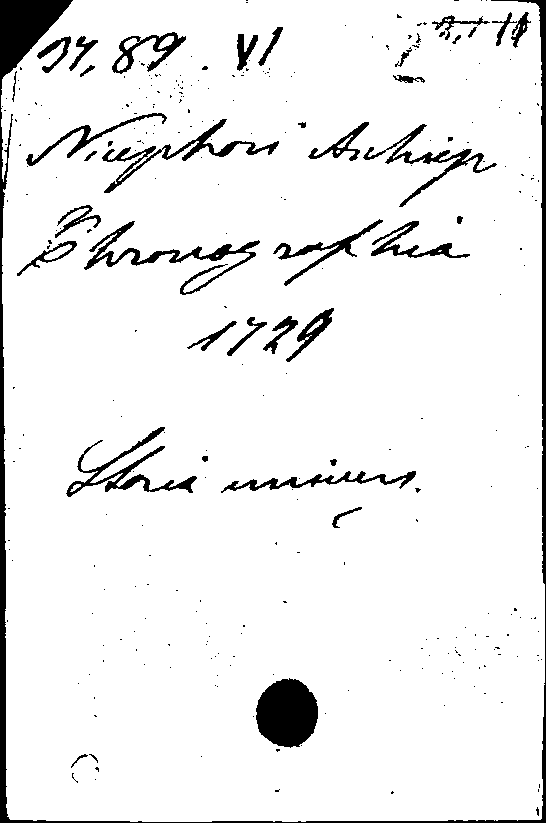 37,89. VI
Nicephori Achiep
Chronographia
1729
Storia univers.